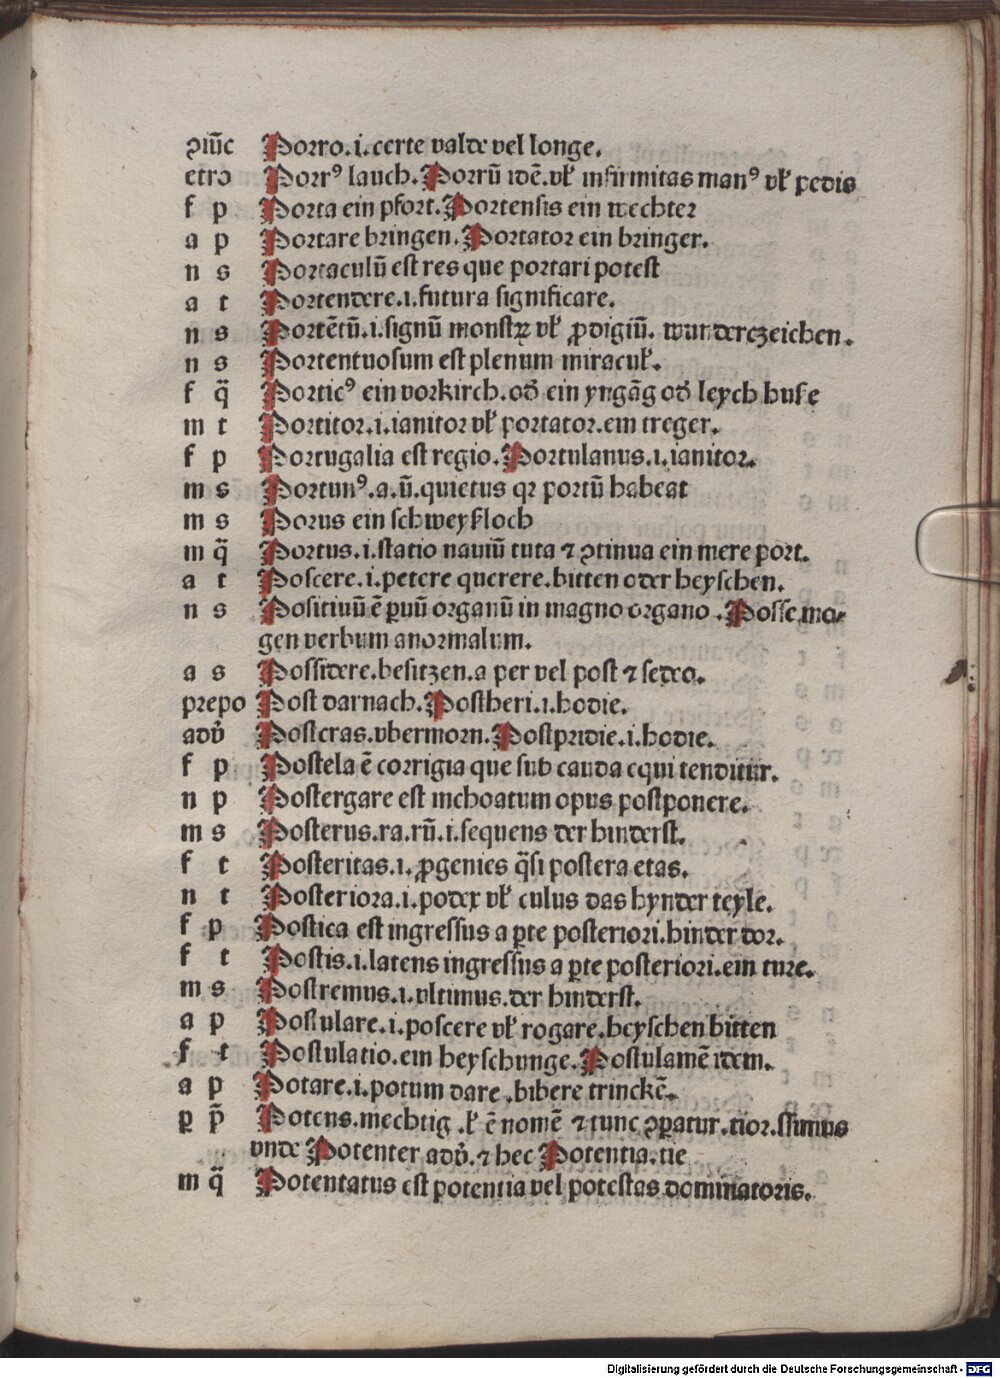 ꝯiūc Porro.i.certe valde vel longe.
etro Porrꝰ lauch. Porrū idē.vł infirmitas manꝰ vł pedis
f p Porta ein pfort. Portensis ein wechter
a p Portare bringen. Portator ein bringer.
n s Portaculū est res que portari potest
a t Portendere.i.futura significare.
n s Portētū.i.signū monstꝝ vł ꝓdigiū. wunderczeichen.
n s Portentuosum est plenum miracuł.
f q̄ Porticꝰ ein vorkirch.od̄ ein yngāg od̄ leych huse
m t Portitor.i.ianitor vł portator.ein treger.
f p Portugalia est regio. Portulanus.i.ianitor.
m s Portunꝰ.a.ū.quietus qꝛ portū habeat
m s Porus ein schweyßloch
m q̄ Portus.i.statio nauiū tuta ⁊ ꝯtinua ein mere port.
a t Poscere.i.petere querere.bitten oder heyschen.
n s Positiuū ē ꝑuū organū in magno organo. Posse.mo⸗
gen verbum anormalum.
a s Possidere.besitzen.a per vel post ⁊ sedeo.
prepo Post darnach. Postheri.i.hodie.
adv̄ Postcras.vbermorn. Postpridie.i.hodie.
f p Postela ē corrigia que sub cauda equi tenditur.
n p Postergare est inchoatum opus postponere.
m s Posterus.ra.rū.i.sequens der hinderst.
f t Posteritas.i.ꝓgenies q̄si postera etas.
n t Posteriora.i.podex vł culus das hynder teyle.
f p Postica est ingressus a ꝑte posteriori.hinder dor.
f t Postis.i.latens ingressus a ꝑte posteriori.ein ture.
m s Postremus.i.vltimus.der hinderst.
a p Postulare.i.poscere vł rogare.heyschen bitten
f t Postulatio.ein heyschunge. Postulamē idem.
a p Potare.i.potum dare.bibere trinckē.
ꝑ p̄ Potens.mechtig.ł ē nomē ⁊ tunc ꝯꝑatur.tior.ssimus
vnde Potenter adv̄.⁊ hec Potentia.tie
m q̄ Potentatus est potentia vel potestas dominatoris.
Digitalisierung gefördert durch die Deutsche Forschungsgemeinschaft - DFG